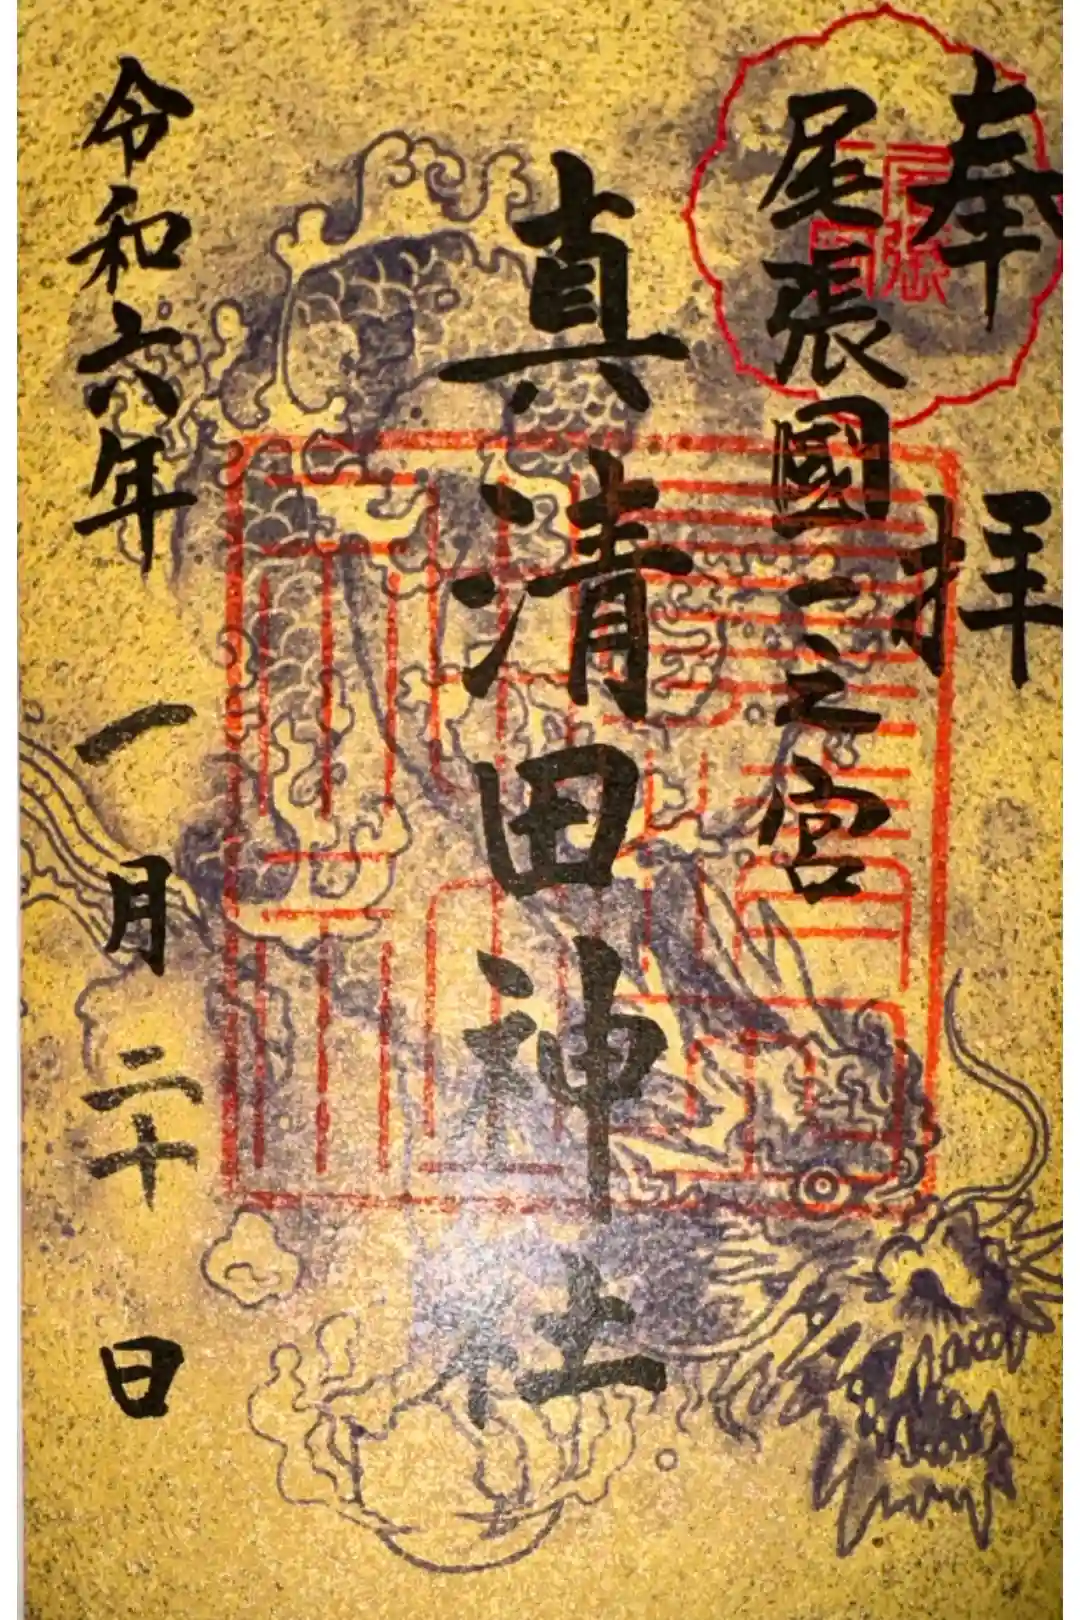 奉拝
尾張國一之宮
真清田神社
令和六年一月二十日